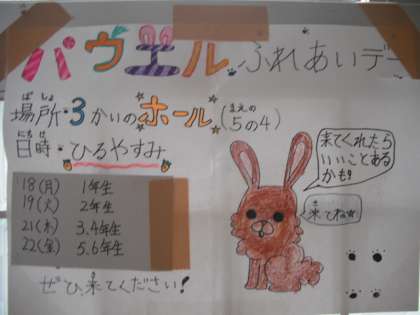 パウエルふれあいデー
場所・3かいのホール(5の4)
ばしょ
まえの
日時・ひるやすみ
にちじ
18(月) 1年生
19(火) 2年生
21(木) 3.4年生
22(金) 5.6年生
ぜひ、来てください!
来てくれたら
いいことある
かも!
来てね☆